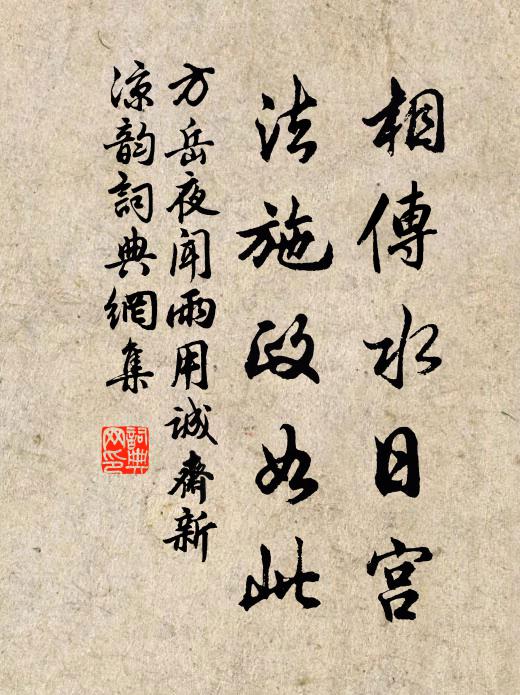 相傳水日宮
法施政如此
方岳夜闻雨用诚斋新
凉韵詞典網集
詞典
网印